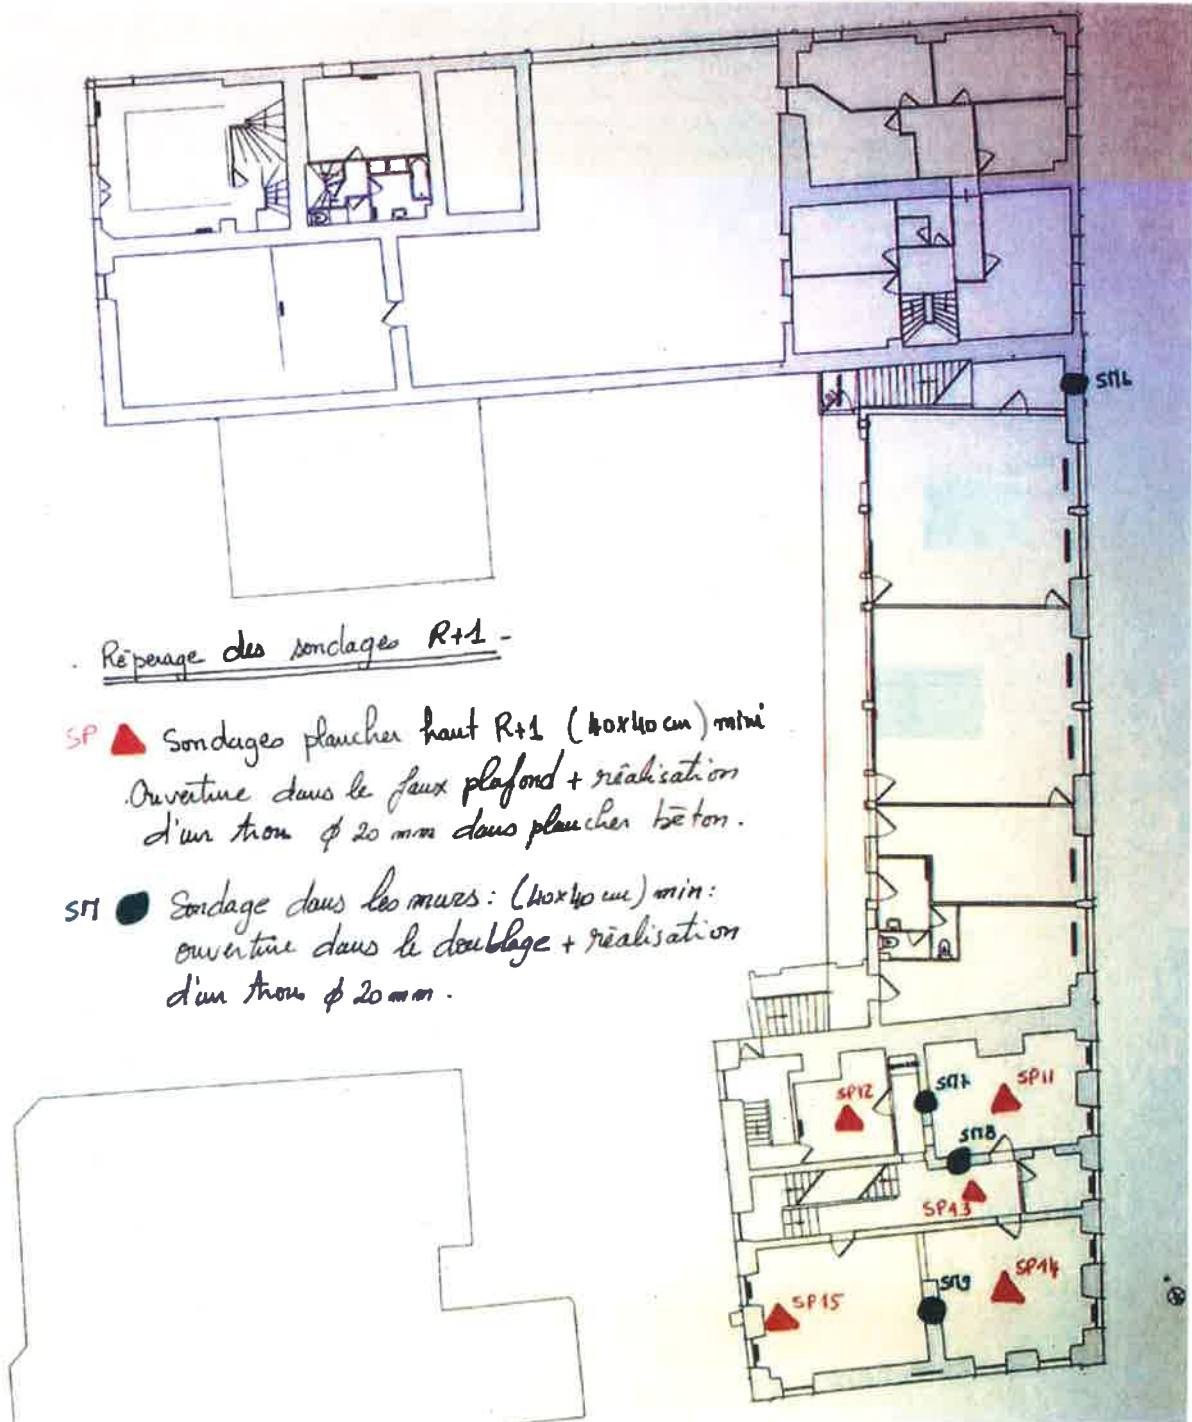 SM6
. Réperage des sondages R+1 -
SP Sondages plancher haut R+1 (40x40 cm) mini
.Ouverture dans le faux plafond + réalisation
d'un trou ϕ 20 mm dans plancher béton.
SM Sondage dans les murs : (40x40 cm) min :
ouverture dans le doublage + réalisation
d'un trou ϕ 20 mm .
SP12
SM7
SP11
SM8
SP13
SP14
SM9
SP15